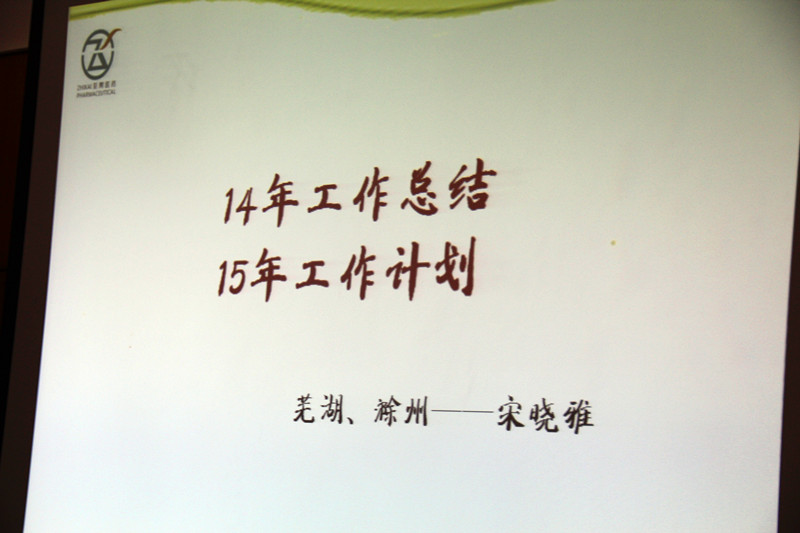 PHARMACEUTICAL
14年工作总结
15年工作计划
芜湖、滁州——宋晓雅